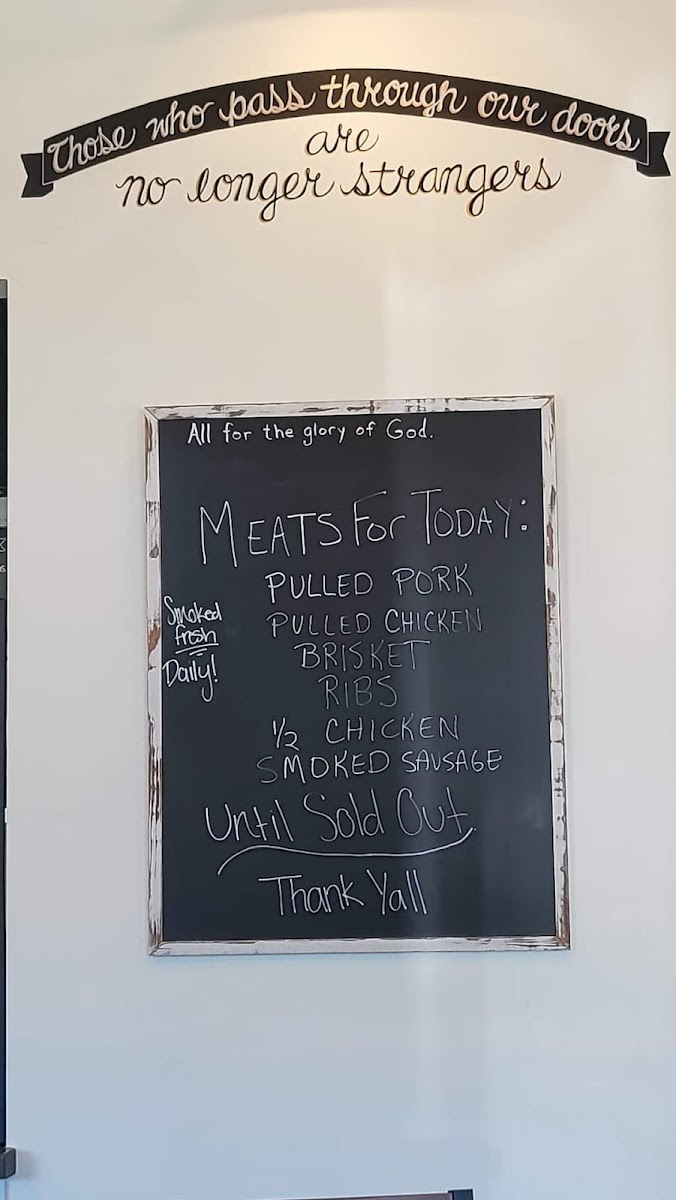 Those who pass through our doors
are
no longer strangers
All for the glory of God.
MEATS For TODAY:
PULLED PORK
PULLED CHICKEN
BRISKET
RIBS
1/2 CHICKEN
SMOKED SAUSAGE
Smoked
fresh
Daily!
Until Sold Out
Thank Yall